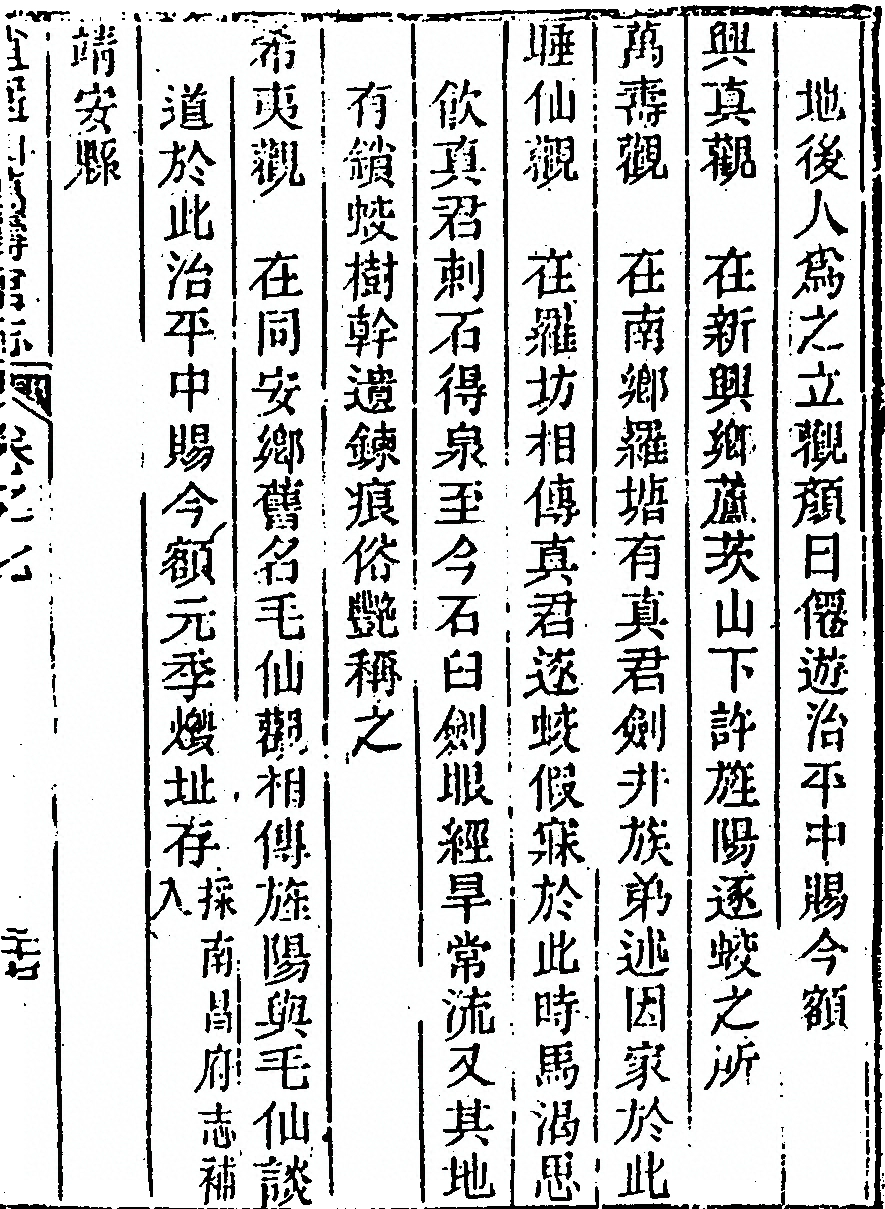 地後人爲之立觀顏曰僊遊治平中賜今額
興真觀　在新興鄉蔗茨山下許旌陽逐蛟之所
萬壽觀　在南鄉羅塘有真君劍井族弟述因家於此
睡仙觀　在羅坊相傳真君逐蛟假寐於此時馬渴思
飲真君刺石得泉至今石臼劍眼經旱常流又其地
有鎖蛟樹幹遺鍊痕俗艷稱之
希夷觀　在同安鄉舊名毛仙觀相傳旌陽與毛仙談
道於此治平中賜今額元季燬址存採南昌府志補入
靖安縣